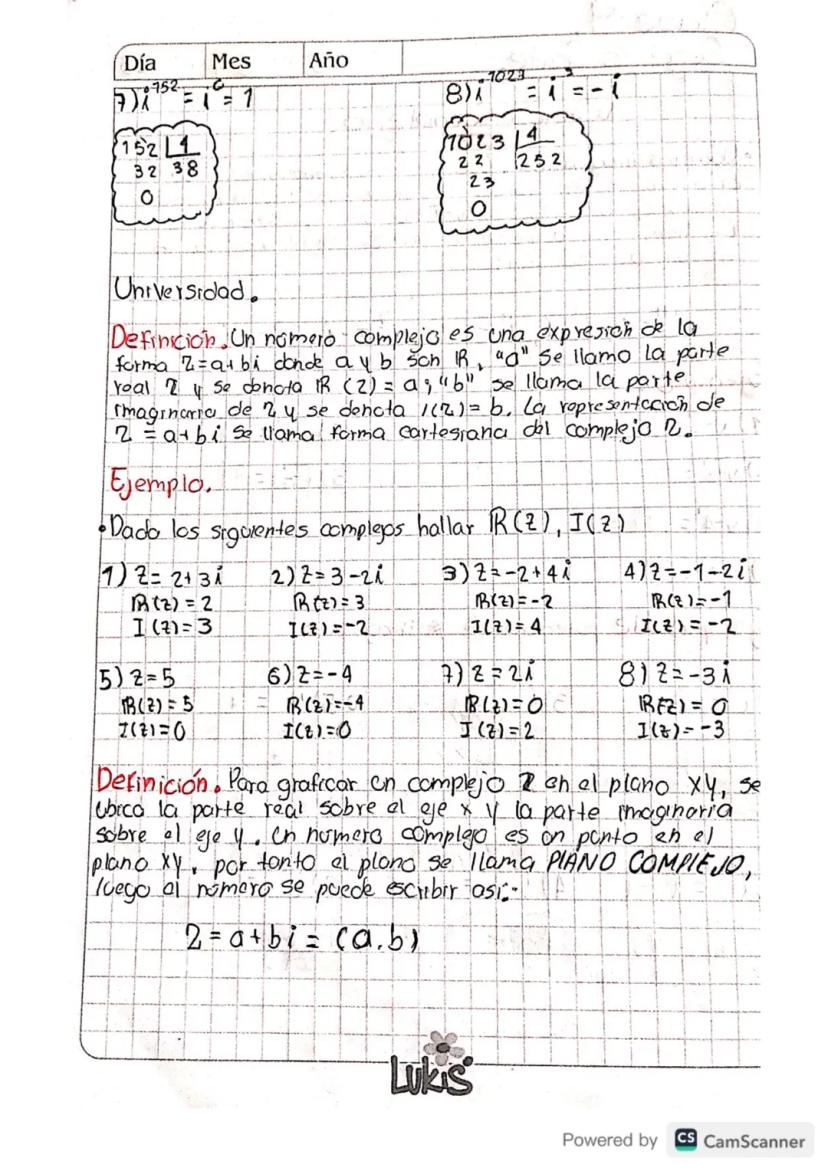 Día Mes Año
7) i¹⁵² = i⁰ = 1 8) i¹⁰²³ = i³ = -i
152 | 4 1023 | 4
32 38 22 252
0 23
0
Universidad.
Definición. Un número complejo es una expresión de la
forma z = a+bi donde a y b son ℝ, "a" se llama la parte
real z y se denota ℝ(z) = a; "b" se llama la parte
imaginaria de z y se denota I(z) = b. La representación de
z = a+bi se llama forma cartesiana del complejo z.
Ejemplo.
• Dado los siguientes complejos hallar ℝ(z), I(z)
1) z = 2+3i 2) z = 3-2i 3) z = -2+4i 4) z = -1-2i
ℝ(z) = 2 ℝ(z) = 3 ℝ(z) = -2 ℝ(z) = -1
I(z) = 3 I(z) = -2 I(z) = 4 I(z) = -2
5) z = 5 6) z = -4 7) z = 2i 8) z = -3i
ℝ(z) = 5 ℝ(z) = -4 ℝ(z) = 0 ℝ(z) = 0
I(z) = 0 I(z) = 0 I(z) = 2 I(z) = -3
Definición. Para graficar un complejo z en el plano xy, se
ubica la parte real sobre el eje x y la parte imaginaria
sobre el eje y. Un número complejo es un punto en el
plano xy, por tanto el plano se llama PLANO COMPLEJO,
luego al número se puede escribir así:
z = a+bi = (a,b)
Lukis
Powered by CS CamScanner